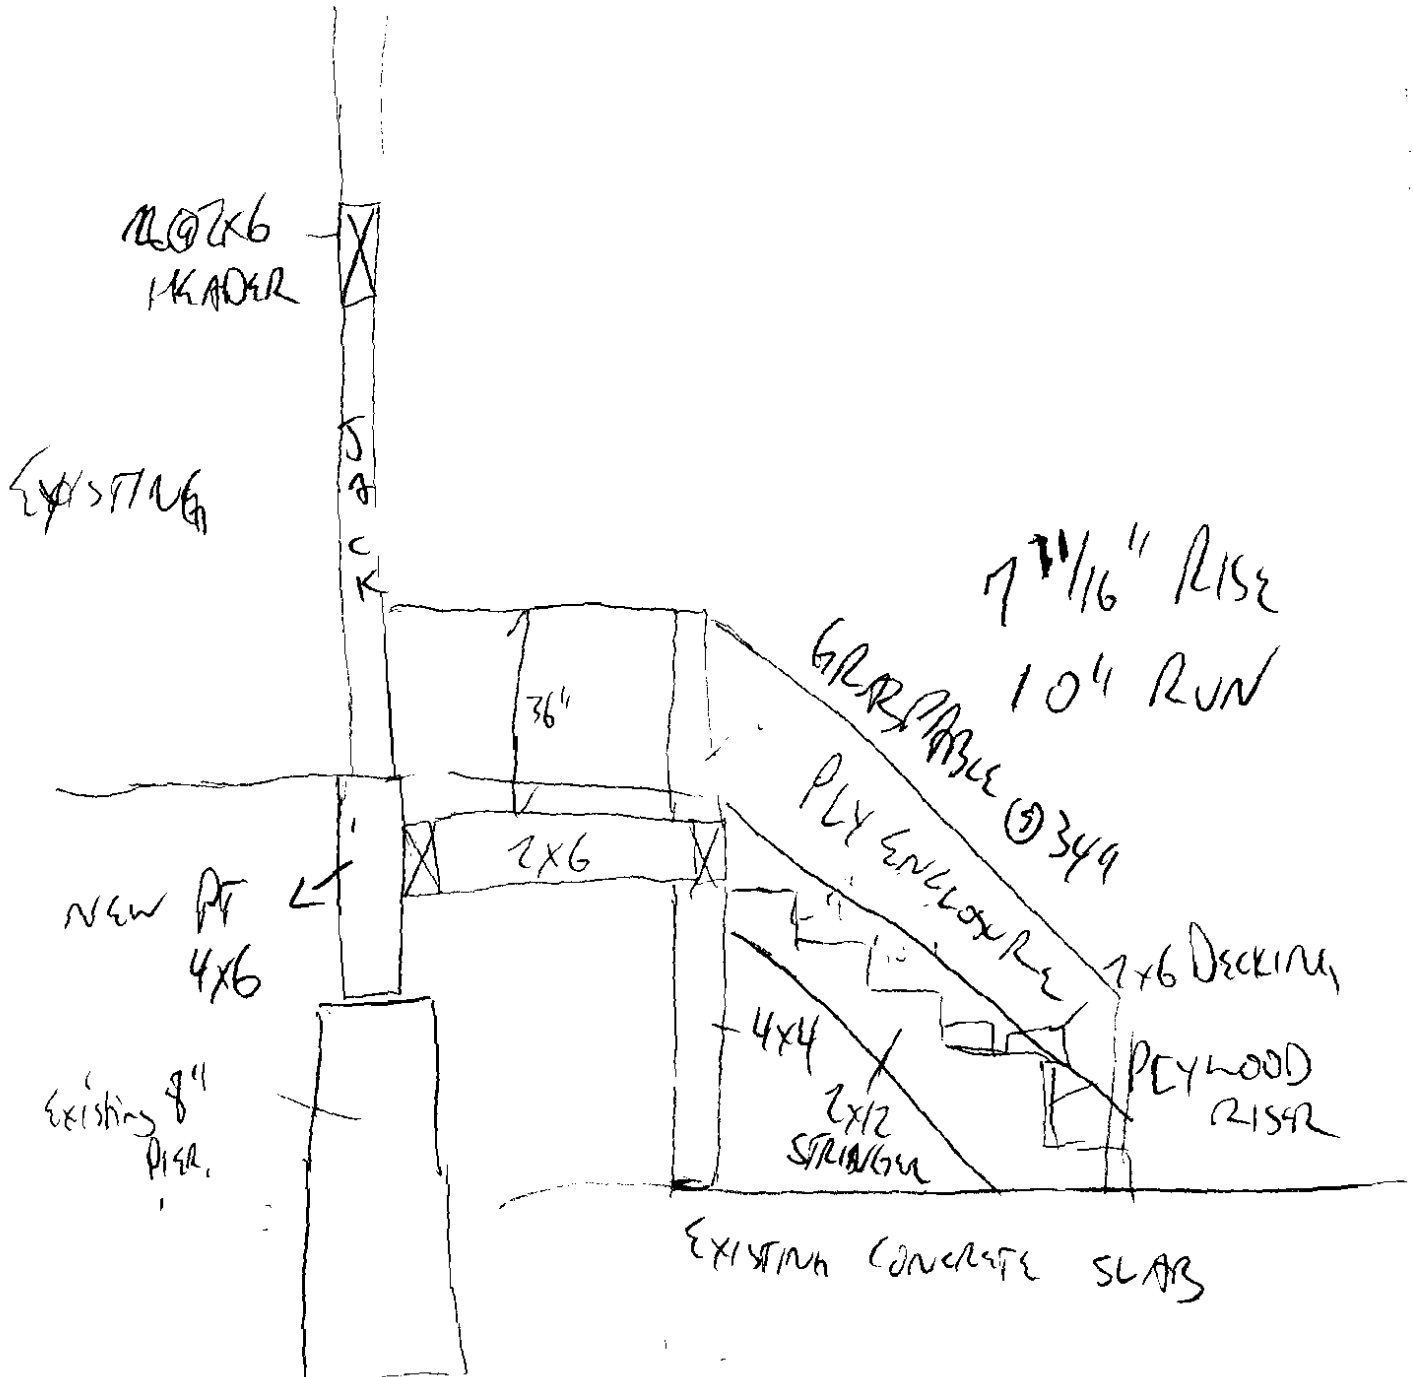 2x6
HEADER
JACK
EXISTING
7 11/16" RISE
10" RUN
36"
GRASPABLE @ 34"
PLY ENCLOSURE
2x6
NEW PT
4x6
2x6 DECKING
4x4
PLYWOOD
RISER
2x12
STRINGER
Existing 8"
PIER.
EXISTING CONCRETE SLAB